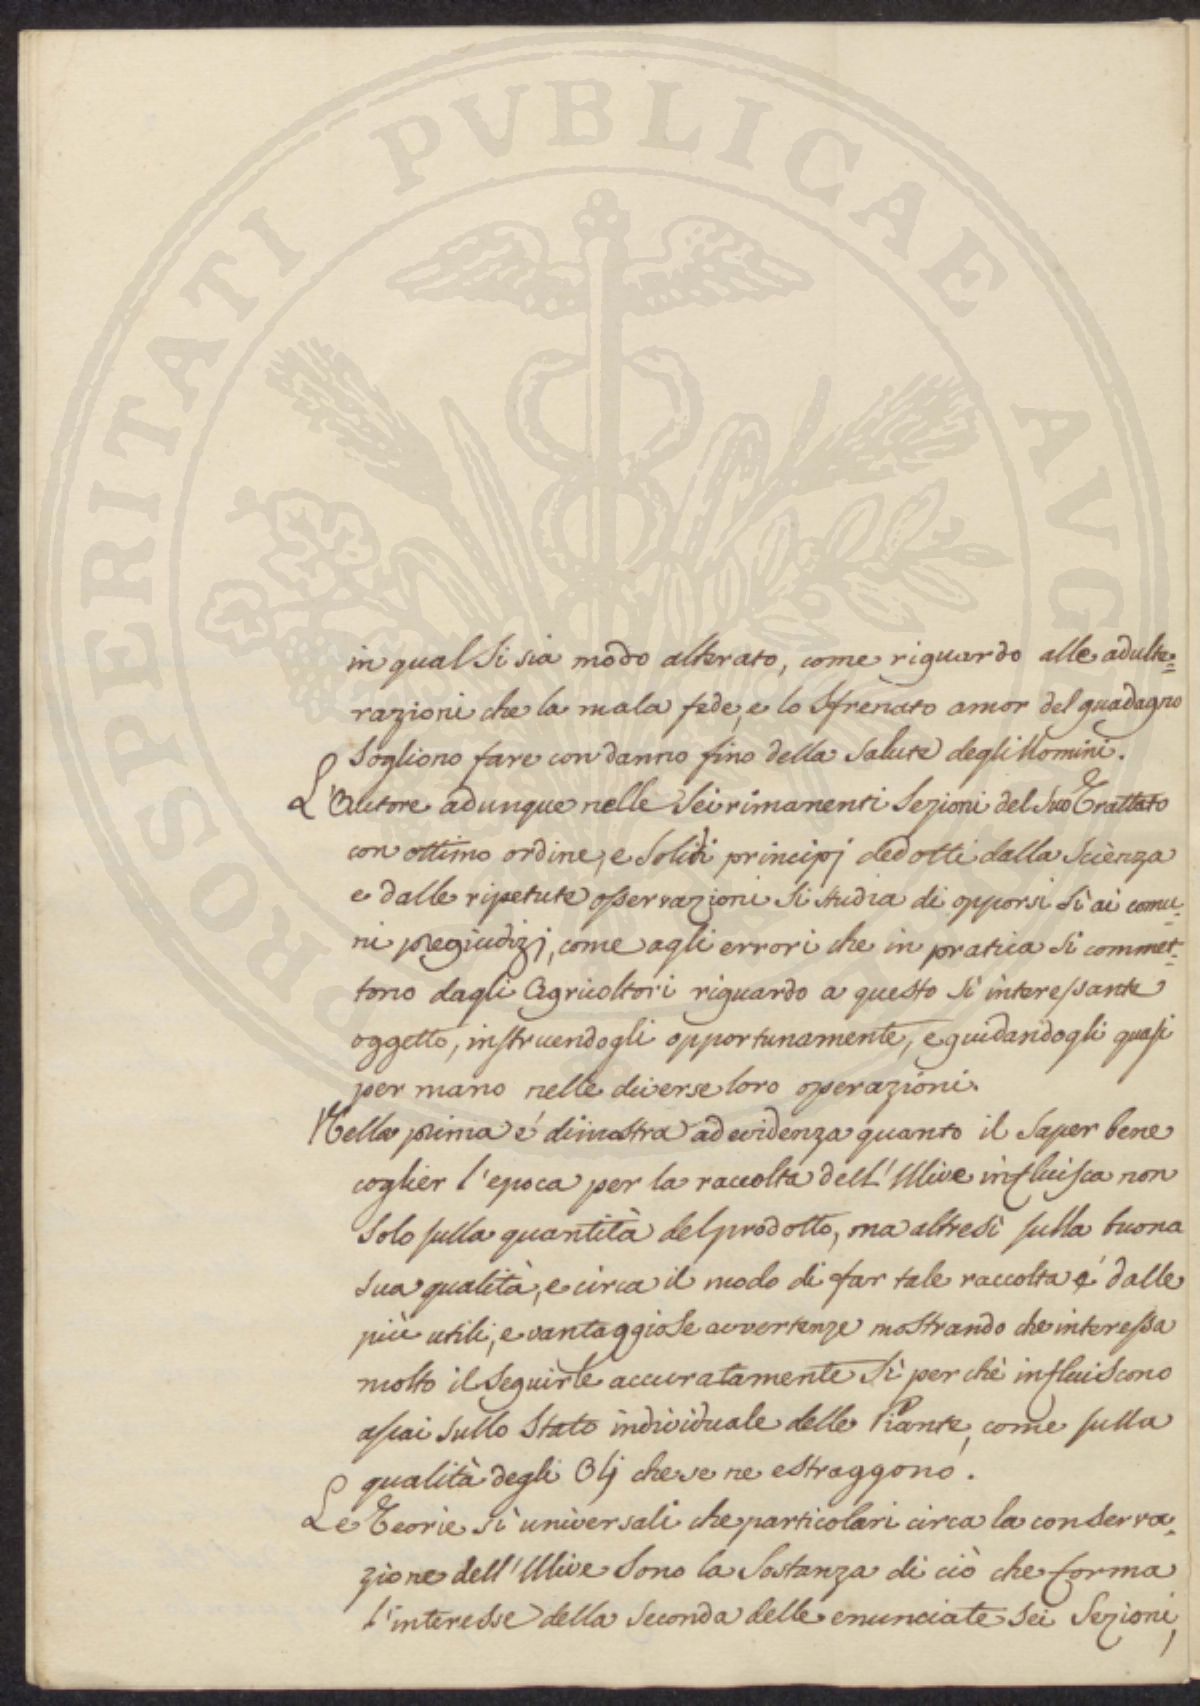 PROSPERITATI PUBLICAE AUGENDAE
in qual si sia modo alterato, come riguardo alle adulte=
razioni che la mala fede, e lo sfrenato amor del guadagno
sogliono fare con danno fino della salute degli Uomini.
L'Autore adunque nelle sei rimanenti Sezioni del suo Trattato
con ottimo ordine, e solidi principj dedotti dalla Scienza
e dalle ripetute osservazioni si studia di opporsi sì ai comu=
ni pregiudizj, come agli errori che in pratica si commet=
tono dagli Agricoltori riguardo a questo sì interessante
oggetto, instruendogli opportunamente, e guidandogli quasi
per mano nelle diverse loro operazioni.
Nella prima è dimostra ad evidenza quanto il saper bene
coglier l'epoca per la raccolta dell'Ulive influisca non
solo sulla quantità del prodotto, ma altresì sulla buona
sua qualità, e circa il modo di far tale raccolta è dalle
più utili, e vantaggiose avvertenze mostrando che interessa
molto il seguirle accuratamente sì perchè influiscono
assai sullo Stato individuale delle Piante, come sulla
qualità degli Olj che se ne estraggono.
Le Teorie sì universali che particolari circa la conserva=
zione dell'Ulive sono la sostanza di ciò che forma
l'interesse della seconda delle enunciate sei Sezioni,